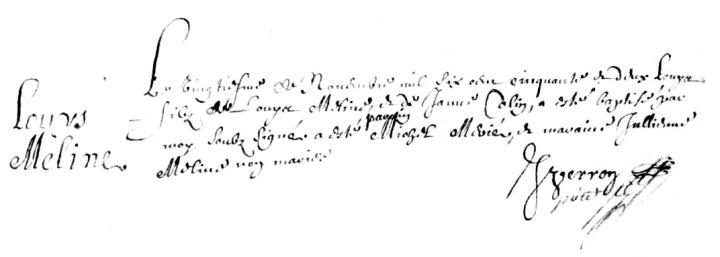 Louys
Meline
Le Vingtiesme de Novembre mil six cent cinquante et deux Louys
filz de Louys Meline, et de Janne Colin, a esté baptisé par
moy soubz signé a esté parrin Michel et maraine Jullienne
Meline non mariée